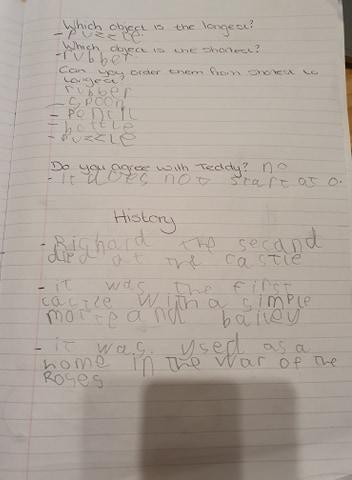 Which object is the longest?
- puzzle.
Which object is the shortest?
- rubber
Can you order them from shortest to
longest?
rubber
- spoon
- pencil
- bottle
- puzzle
Do you agree with Teddy? no
- it does not start at 0.
History
- Righard the second
died at the castle
- it was the first
castle with a simple
motte and bailey
- it was ysed as a
home in the war of the
Roses